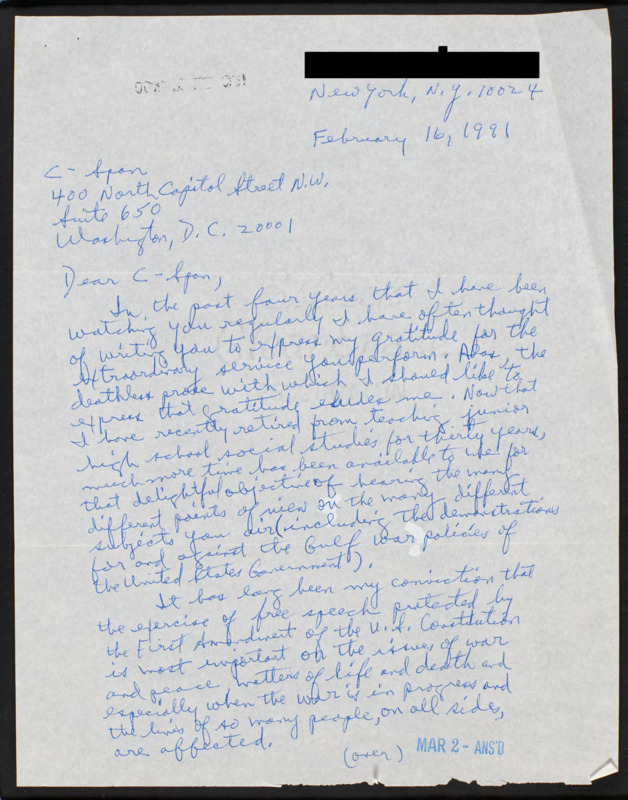 New York, N.Y. 10024
February 16, 1991
C-Span
400 North Capitol Street N.W.
Suite 650
Washington, D.C. 20001
Dear C-Span,
In the past four years that I have been
watching you regularly I have often thought
of writing you to express my gratitude for the
extraordinary service you perform. Alas, the
deathless prose with which I should like to
express that gratitude eludes me. Now that
I have recently retired from teaching junior
high school social studies for thirty years,
much more time has been available to me for
that delightful objective of hearing the many
different points of view on the many different
subjects you air (including the demonstrations
for and against the Gulf war policies of
the United States Government).
It has long been my conviction that
the exercise of free speech protected by
the First Amendment of the U.S. Constitution
is most important on the issues of war
and peace, matters of life and death and
especially when the war is in progress and
the lives of so many people, on all sides,
are affected.
(over)
MAR 2 - ANS'D